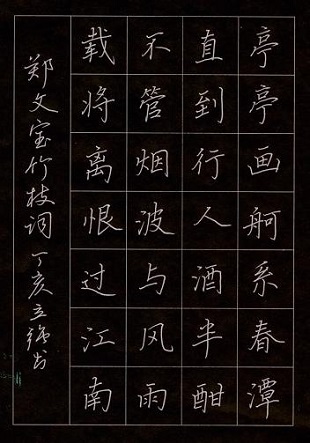 亭亭画舸系春潭
直到行人酒半酣
不管烟波与风雨
载将离恨过江南
郑文宝竹枝词 丁亥立强书